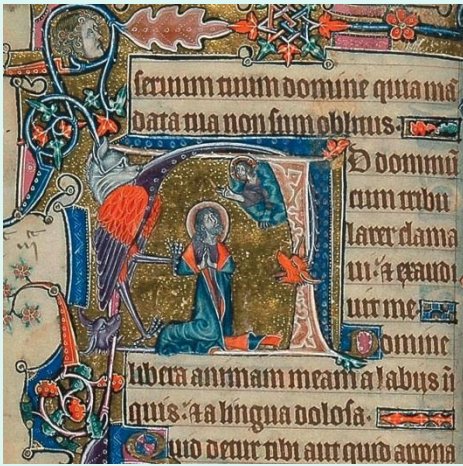 seruum tuum domine quia ma
data tua non sum oblitus.
AD dominū
cum tribu
larer clama
ui: & exaudi
uit me.
Domine
libera animam meam a labiis ini
quis: & a lingua dolosa.
Quid detur tibi aut quid appona